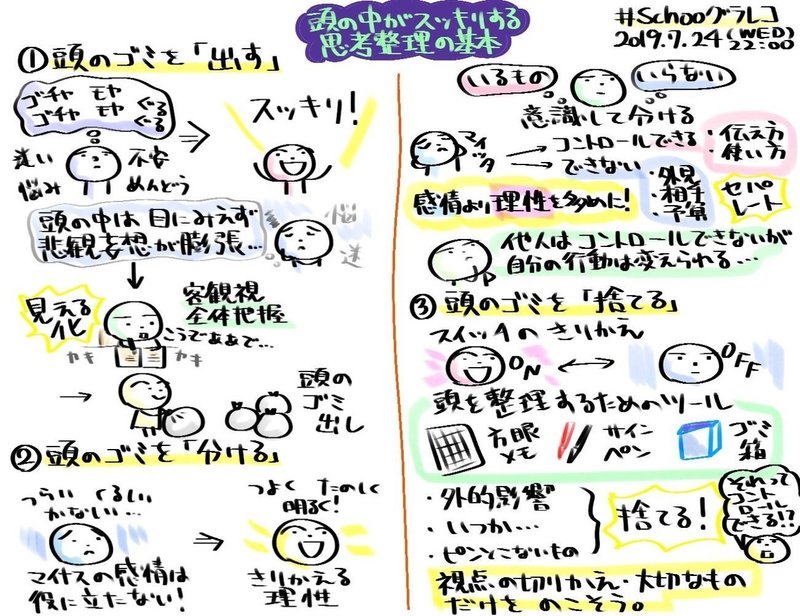 頭の中がスッキリする
思考整理の基本
#Schooグラレコ
2019.7.24(WED)
22:00
①頭のゴミを「出す」
ゴチャ モヤ ぐる
ゴチャ モヤ ぐる
スッキリ!
迷い 不安
悩み めんどう
頭の中は目にみえず
悲観妄想が膨張…
悩
迷
見える
化
客観視
全体把握
こうでああで…
カキ カキ
頭の
ゴミ
出し
②頭のゴミを「分ける」
つらい くるしい
かなしい…
マイナスの感情は
役に立たない!
つよく たのしく
明るく!
きりかえる
理性
いるもの いらない
意識して分ける
コントロールできる
・伝え方
・使い方
できない
・外見
・相手
・予算
感情より理性を多めに!
セパ
レート
他人はコントロールできないが
自分の行動は変えられる…
③頭のゴミを「捨てる」
スイッチのきりかえ
ON OFF
頭を整理するためのツール
方眼
メモ
サイン
ペン
ゴミ
箱
・外的影響
・いつか…
・ピンとこないもの
捨てる!
それって
コント
ロール
できる!?
視点の切りかえ・大切なもの
だけを のこそう。